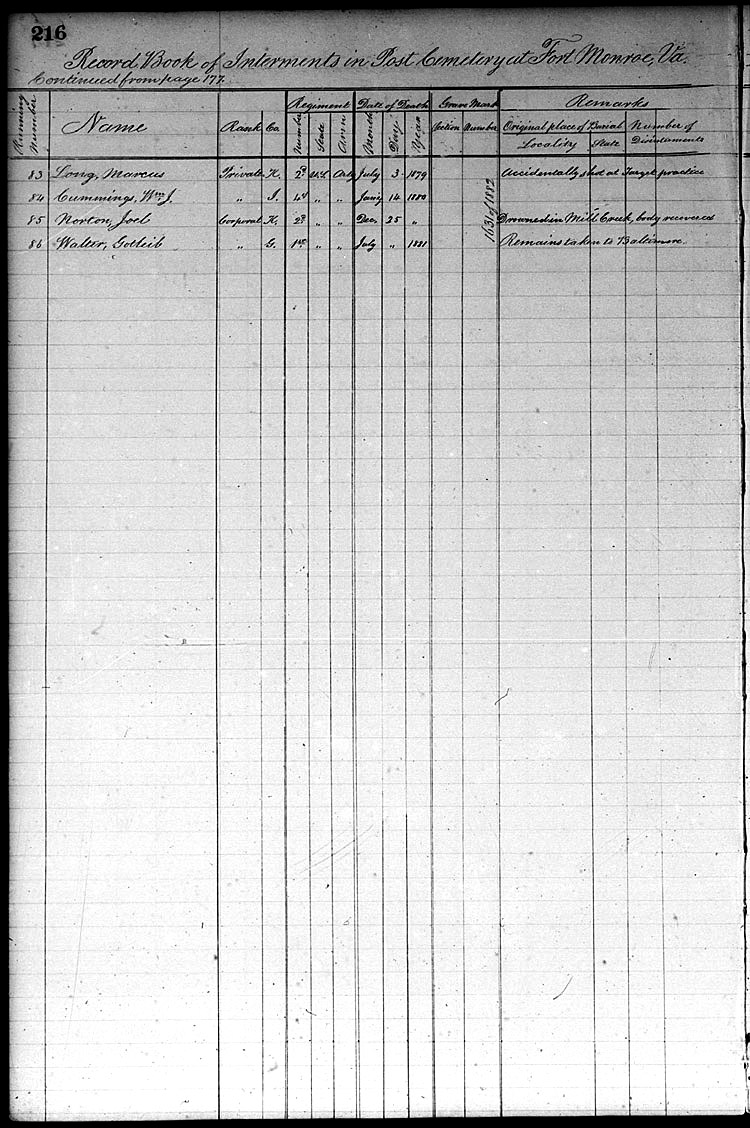 216
Record Book of Interments in Post Cemetery at Fort Monroe, Va.
Continued from page 177.
Running Number Name Rank Co. Regiment Number State Arm Date of Death Month Day Year Grave Mark Section Number Remarks Original place of Burial Locality State Number of Disinterments
83 Long, Marcus Private K. 2d U.S. Arty July 3 1879 Accidentally shot at Target practice
84 Cummings, Wm. J. " I. " " 14 1880
85 Norton, Joel Corporal K. 2d " " Dec. 25 " Drowned in Mill Creek, body recovered
86 Walter, Gotleib " G. 1st " " July " 1881 Remains taken to Baltimore.
1882